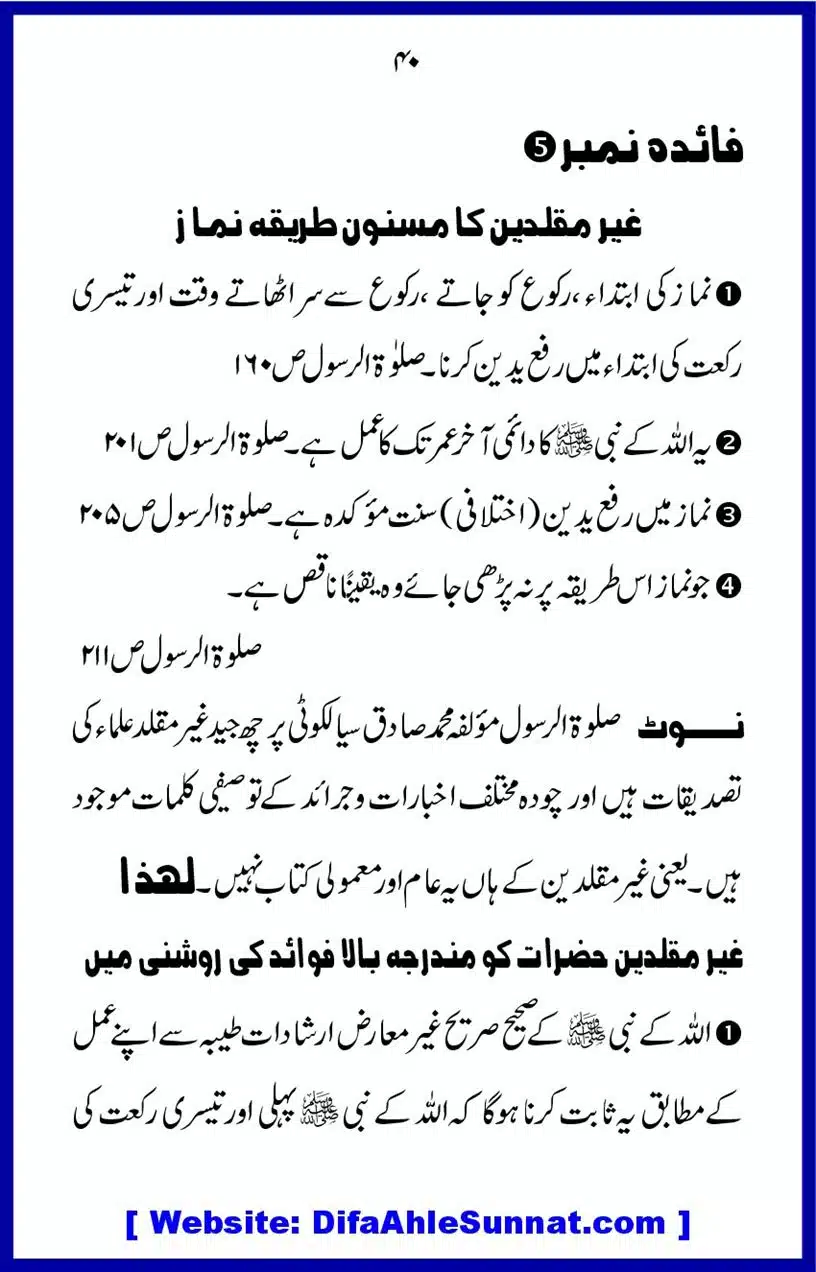 ۴۰
فائدہ نمبر ❺
غیر مقلدین کا مسنون طریقہ نماز
❶ نماز کی ابتداء، رکوع کو جاتے، رکوع سے سر اٹھاتے وقت اور تیسری
رکعت کی ابتداء میں رفع یدین کرنا۔ صلوٰۃ الرسول ص ۱۶۰
❷ یہ اللہ کے نبی ﷺ کا دائمی آخر عمر تک کا عمل ہے۔ صلوۃ الرسول ص ۲۰۱
❸ نماز میں رفع یدین (اختلافی) سنت مؤکدہ ہے۔ صلوۃ الرسول ص ۲۰۵
❹ جو نماز اس طریقہ پر نہ پڑھی جائے وہ یقیناً ناقص ہے۔
صلوۃ الرسول ص ۲۱۱
نـــوٹ صلوۃ الرسول مؤلفہ محمد صادق سیالکوٹی پر چھ جید غیر مقلد علماء کی
تصدیقات ہیں اور چودہ مختلف اخبارات و جرائد کے توصیفی کلمات موجود
ہیں۔ یعنی غیر مقلدین کے ہاں یہ عام اور معمولی کتاب نہیں۔ لھذا
غیر مقلدین حضرات کو مندرجہ بالا فوائد کی روشنی میں
❶ اللہ کے نبی ﷺ کے صحیح صریح غیر معارض ارشادات طیبہ سے اپنے عمل
کے مطابق یہ ثابت کرنا ہوگا کہ اللہ کے نبی ﷺ پہلی اور تیسری رکعت کی
[ Website: DifaAhleSunnat.com ]